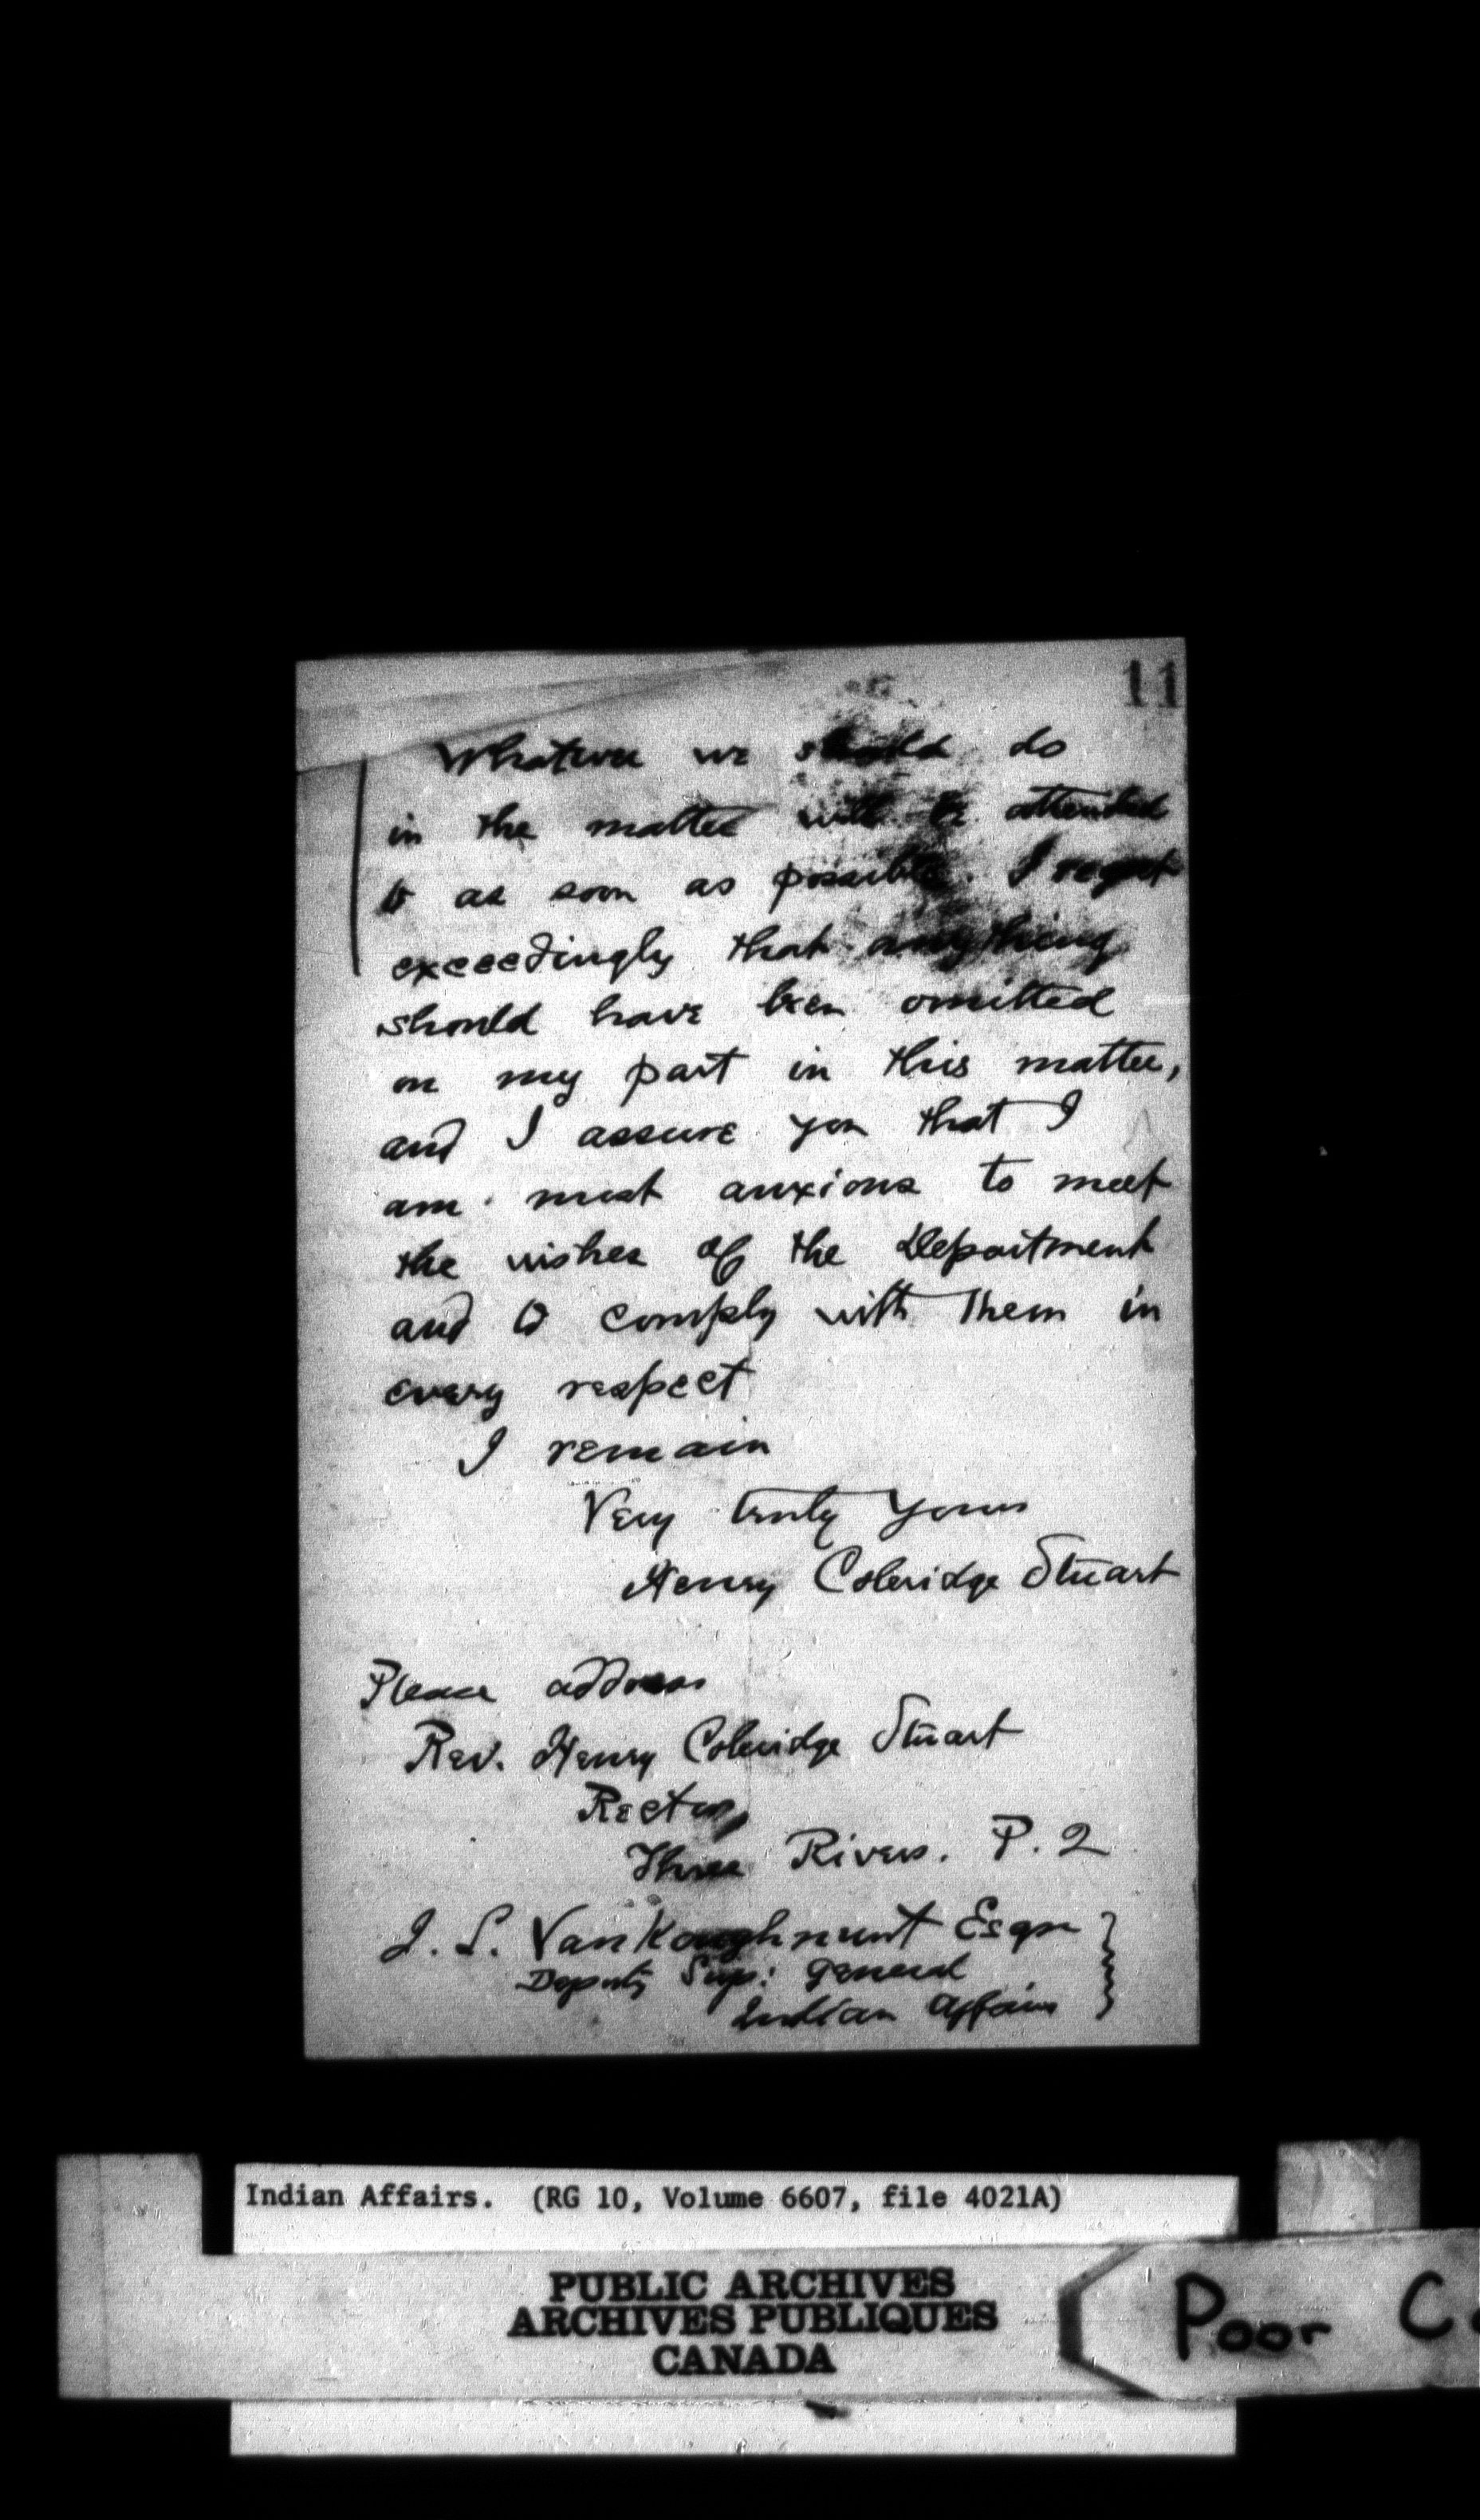 11
Whatever we should do
in the matter will be attended
to as soon as possible. I regret
exceedingly that anything
should have been omitted
on my part in this matter,
and I assure you that I
am most anxious to meet
the wishes of the Department
and to comply with them in
every respect
I remain
Very truly yours
Henry Coleridge Stuart
Please address
Rev. Henry Coleridge Stuart
Rector,
Three Rivers. P. Q
L. VanKoughnent Esqr
Deputy Sup: General
Indian Affairs
Indian Affairs. (RG 10, Volume 6607, file 4021A)
PUBLIC ARCHIVES
ARCHIVES PUBLIQUES
CANADA
Poor